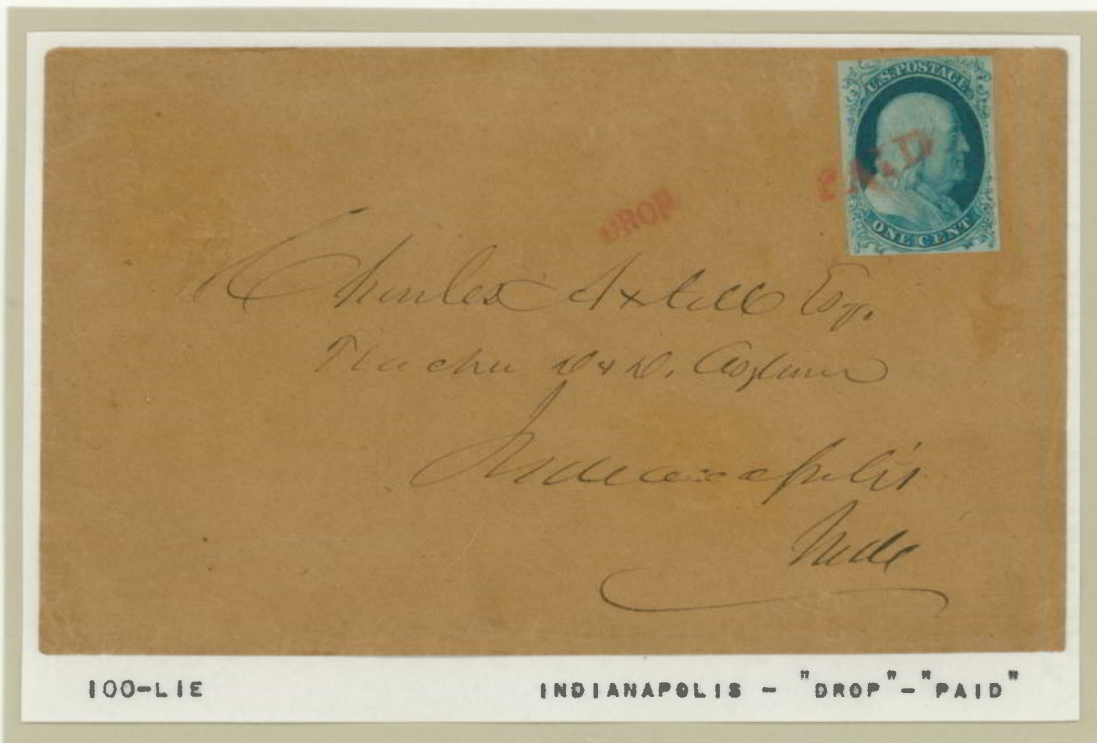 U.S. POSTAGE
PAID
ONE CENT
DROP
Charles Axtell Esq.
Teacher D & D. Asylum
Indianapolis
Inda
100-L1E
INDIANAPOLIS - "DROP"-"PAID"